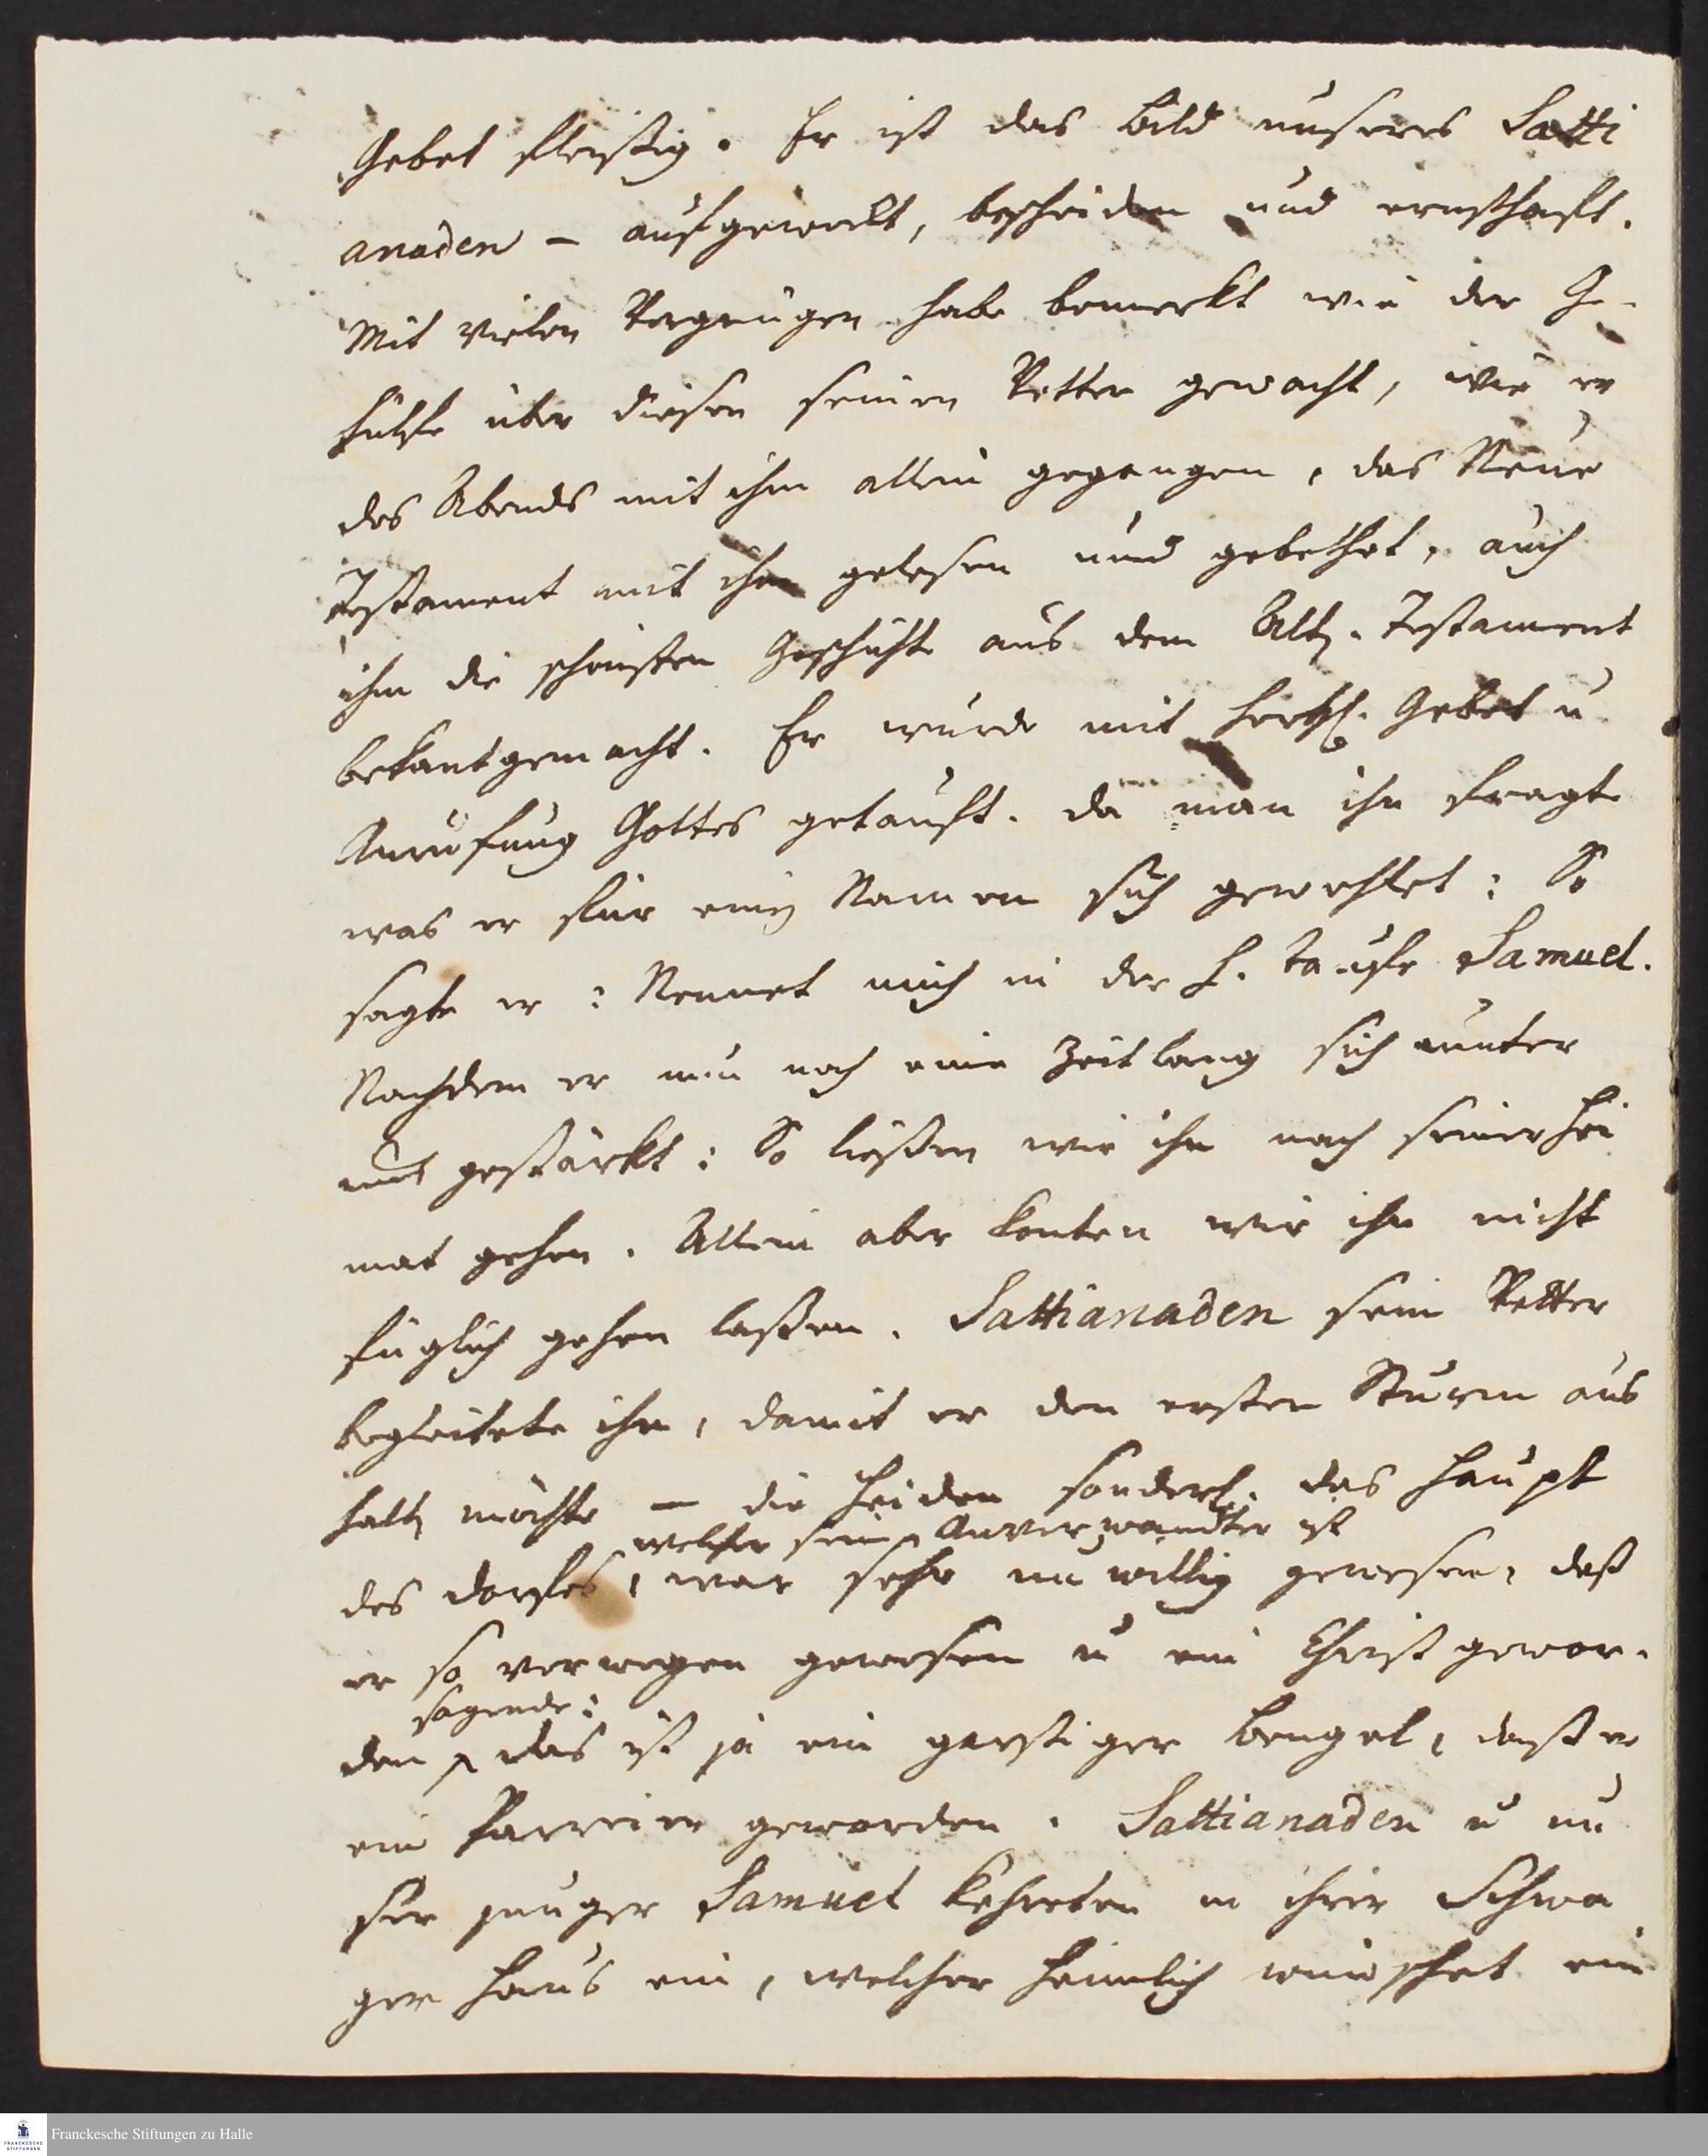 Gebet fleißig. Er ist das Bild unseres Satti
anaden – aufgeweckt, bescheiden und ernsthaft.
Mit vielen Vergnügen habe bemerkt wie der Ge-
hülfe über diesen seinen Vetter gewacht, wie er
des Abends mit ihm allein gegangen, das Neue
Testament mit ihm gelesen und gebethet, auch
ihm die schönsten Geschichte aus dem Alt. Testament
bekant gemacht. Er wurde mit hertzl. Gebet u
Anrufung Gottes getauft. da man ihn fragte
was er für ein Namen sich gewehlet: So
sagte er: Nennet mich in der h. Taufe Samuel.
Nachdem er nun noch eine Zeitlang sich unter
uns gestärkt: So ließen wir ihn nach seiner Hei
mat gehen. Allein aber konten wir ihn nicht
füglich gehen laßen. Sattianaden sein Vetter
begleitete ihn, damit er den ersten Sturm aus
halt möchte – die Heiden sonderl. das Haupt
welcher sein Anverwandter ist
des Dorfes, war sehr unwillig gewesen, daß
er so verwegen gewesen u ein Christ gewor-
sagende:
den das ist ja ein garstiger Bengel, daß er
ein Parreier geworden. Sattianaden u un
ser junger Samuel kehreten in ihrer Schwa
ger Haus ein, welcher heimlich wünschet ein
Franckesche Stiftungen zu Halle